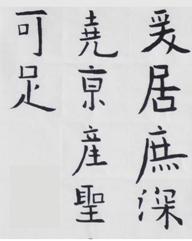 爰居庶深
堯亰産聖
可足